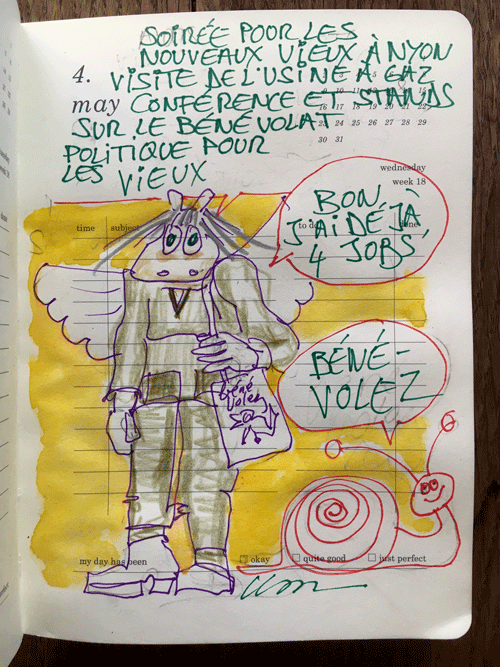 SOIRÉE POOR LES
NOUVEAUX VIEUX À NYON
4. VISITE DE L'USINE À GAZ
may CONFÉRENCE ET STANDS
SUR LE BÉNÉVOLAT
POLITIQUE POUR
LES VIEUX
16 17 18 19 20 21 22
23 24 25 26 27 28 29
30 31
wednesday
week 18
time subject
BON,
J'AI DÉJÀ
4 JOBS
BÉNÉ-
VOLEZ
Béné
Volez
my day has been okay quite good just perfect